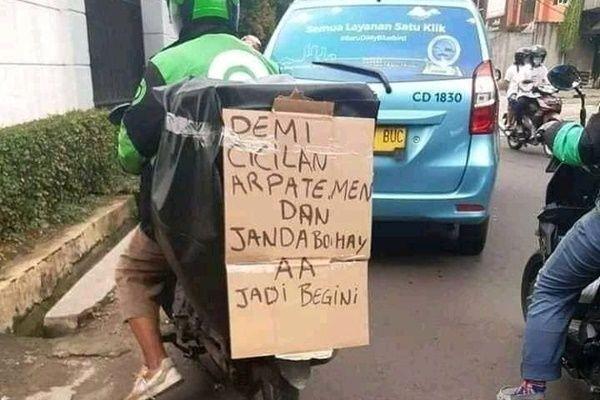 Semua Layanan Satu Klik
#BaruDiMyBluebird
CD 1830
BUC
DEMI
CICILAN
ARPATEMEN
DAN
JANDA BOHAY
AA
JADI BEGINI